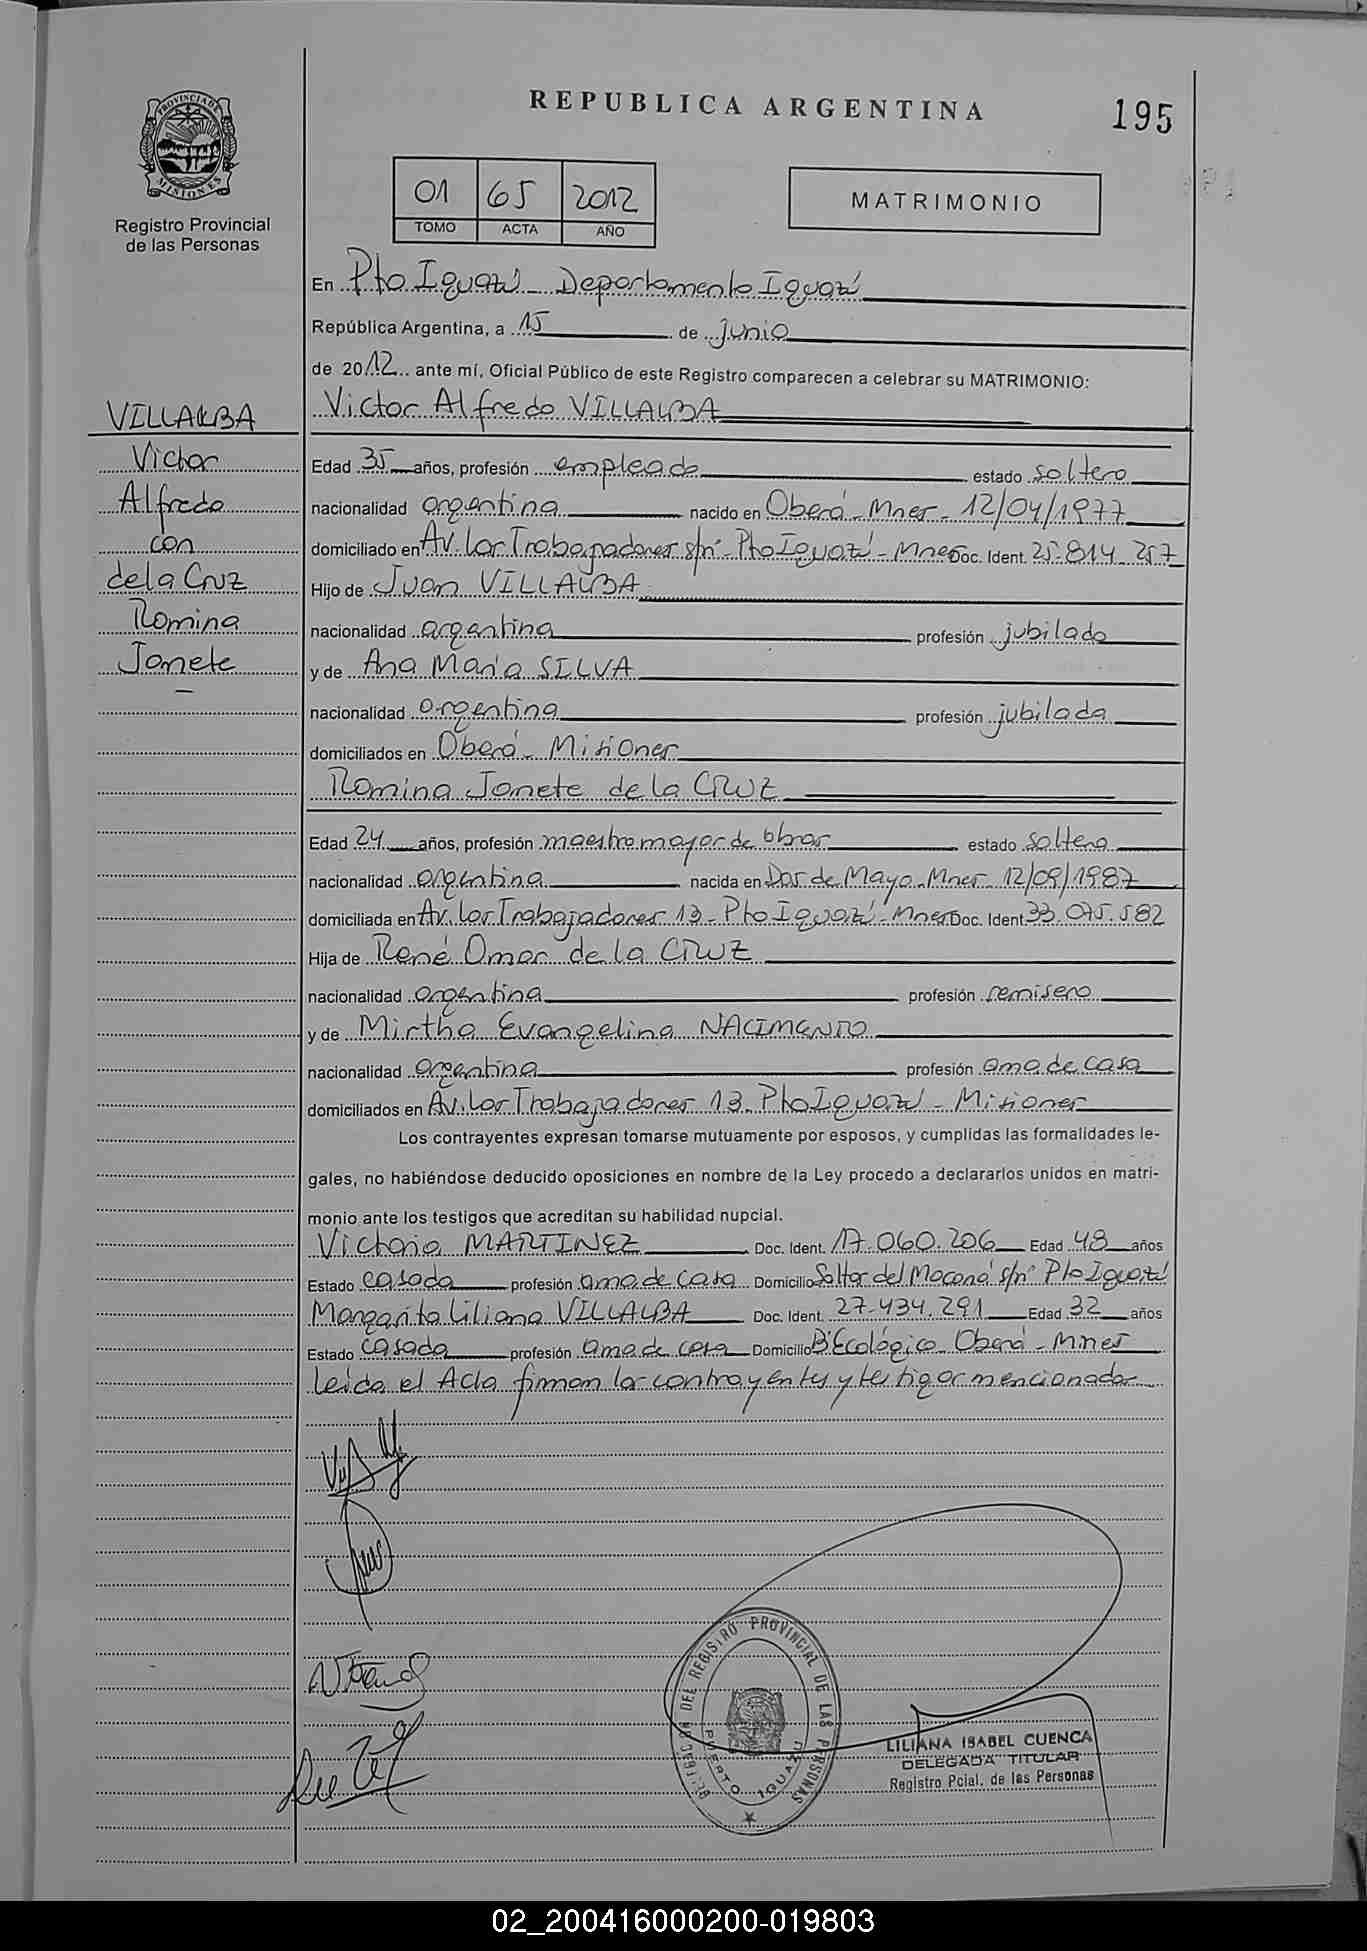 REPUBLICA ARGENTINA
195
PROVINCIA DE MISIONES
Registro Provincial
de las Personas
01 65 2012
TOMO ACTA AÑO
MATRIMONIO
En Pto Iguazú - Departamento Iguazú
República Argentina, a 15 de junio
de 2012 ante mí, Oficial Público de este Registro comparecen a celebrar su MATRIMONIO:
VILLALBA
Victor
Alfredo
con
de la Cruz
Romina
Janete
Victor Alfredo VILLALBA
Edad 35 años, profesión empleado estado soltero
nacionalidad argentina nacido en Oberá - Mnes - 12/04/1977
domiciliado en Av. Los Trabajadores s/nº - Pto Iguazú - Mnes Doc. Ident. 25.814.257
Hijo de Juan VILLALBA
nacionalidad argentina profesión jubilado
y de Ana María SILVA
nacionalidad argentina profesión jubilada
domiciliados en Oberá - Misiones
Romina Janete de la CRUZ
Edad 24 años, profesión maestro mayor de obras estado soltera
nacionalidad argentina nacida en Dos de Mayo - Mnes - 12/09/1987
domiciliada en Av. Los Trabajadores 13 - Pto Iguazú - Mnes Doc. Ident 33.075.582
Hija de René Omar de la CRUZ
nacionalidad argentina profesión remisero
y de Mirtha Evangelina NACIMENTO
nacionalidad argentina profesión ama de casa
domiciliados en Av. Los Trabajadores 13 - Pto Iguazú - Misiones
Los contrayentes expresan tomarse mutuamente por esposos, y cumplidas las formalidades le-
gales, no habiéndose deducido oposiciones en nombre de la Ley procedo a declararlos unidos en matri-
monio ante los testigos que acreditan su habilidad nupcial.
Victoria MARTINEZ Doc. Ident. 17.060.206 Edad 48 años
Estado casada profesión ama de casa Domicilio Saltos del Moconá s/nº Pto Iguazú
Margarita Liliana VILLALBA Doc. Ident. 27.434.291 Edad 32 años
Estado casada profesión ama de casa Domicilio Bº Ecológico Oberá - Mnes
Leída el Acta firman los contrayentes y testigos mencionados
DELEGACION DEL REGISTRO PROVINCIAL DE LAS PERSONAS
PUERTO IGUAZU
LILIANA ISABEL CUENCA
DELEGADA TITULAR
Registro Pcial. de las Personas
02_200416000200-019803